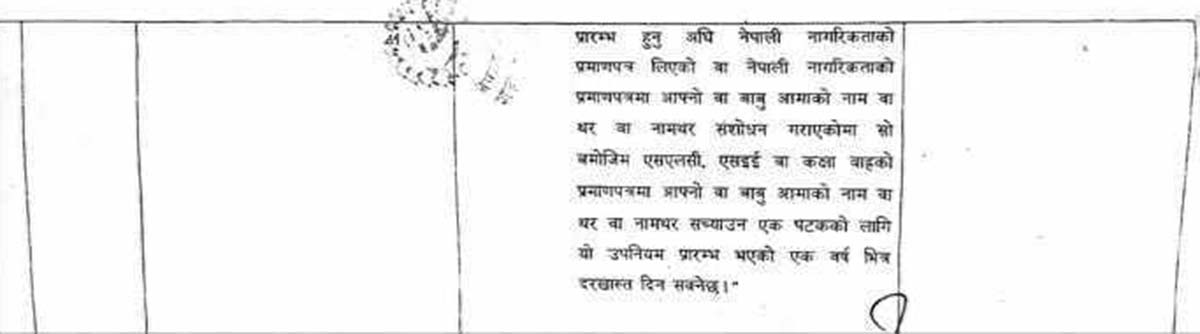 प्रारम्भ हुनु अघि नेपाली नागरिकताको
प्रमाणपत्र लिएको वा नेपाली नागरिकताको
प्रमाणपत्रमा आफ्नो वा बाबु आमाको नाम वा
थर वा नामथर संशोधन गराएकोमा सो
बमोजिम एसएलसी, एसइई वा कक्षा बाह्रको
प्रमाणपत्रमा आफ्नो वा बाबु आमाको नाम वा
थर वा नामथर सच्याउन एक पटकको लागि
यो उपनियम प्रारम्भ भएको एक वर्ष भित्र
दरखास्त दिन सक्नेछ।"